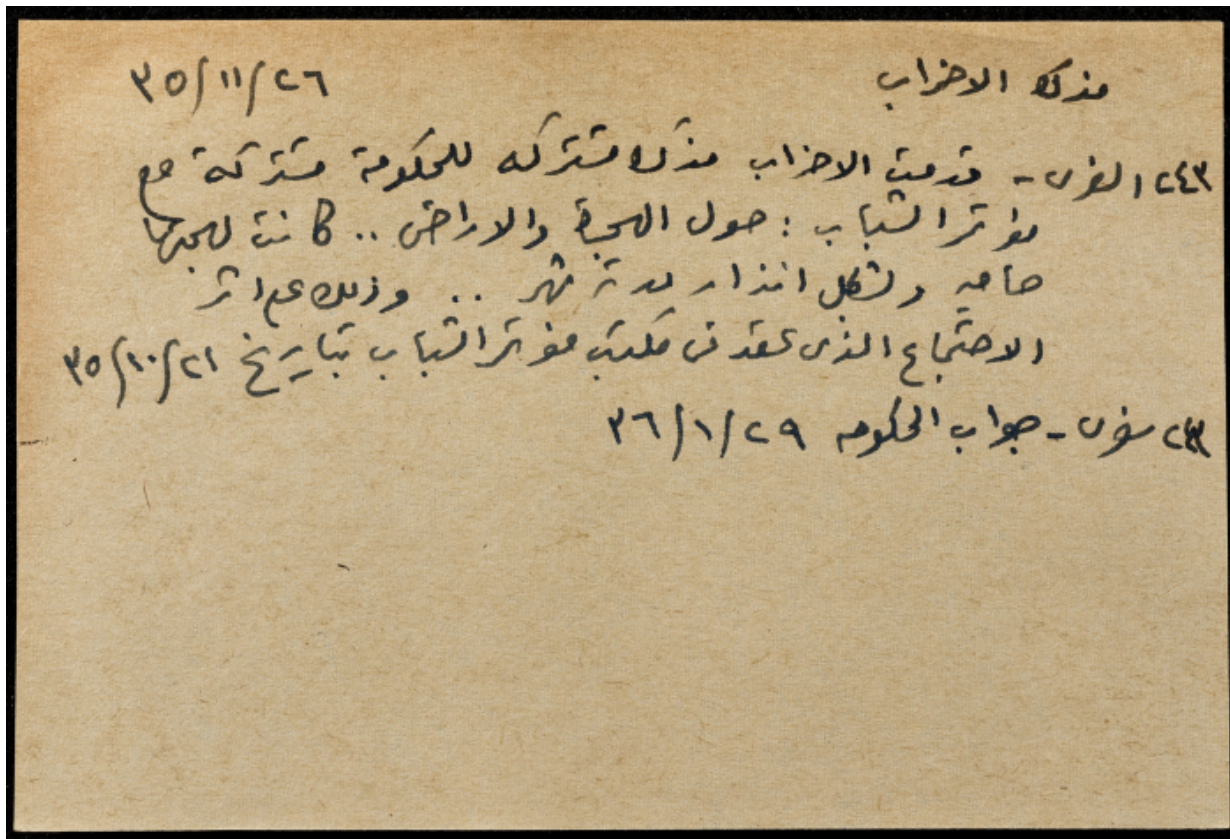 مذكرة الاحزاب ٣٥/١١/٢٦
٢٤٣ السفرى - قدمت الاحزاب مذكرة مشتركه للحكومة مشتركة مع
مؤتمر الشباب : حول الهجرة والاراضى .. كانت لهجتها
حاميه وبشكل انذار لمدة شهر .. وذلك على اثر
الاجتماع الذى عقد فى مكتب مؤتمر الشباب بتاريخ ٣٥/١٠/٢١
سفرى - جواب الحكومه ٣٦/١/٢٩